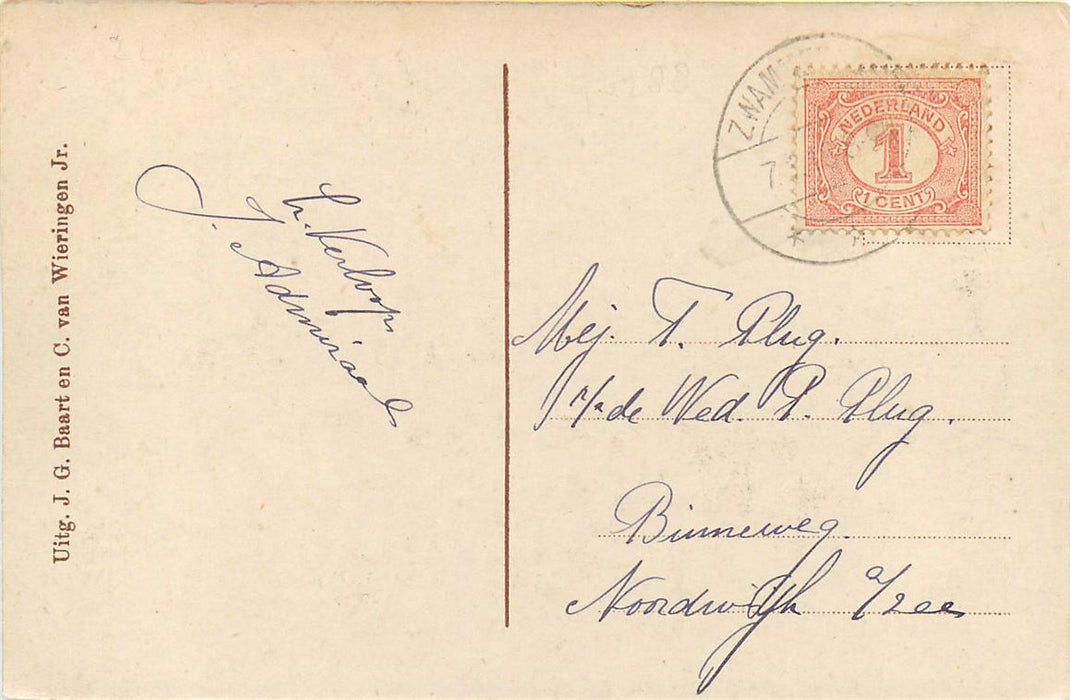 Uitg. J. G. Baart en C. van Wieringen Jr.
Verloop
J. Admiraal
ZWAM
7
NEDERLAND
1
1 CENT
Mej. T. Plug.
de Wed. P. Plug.
Binneweg.
Noordwijk a/zee